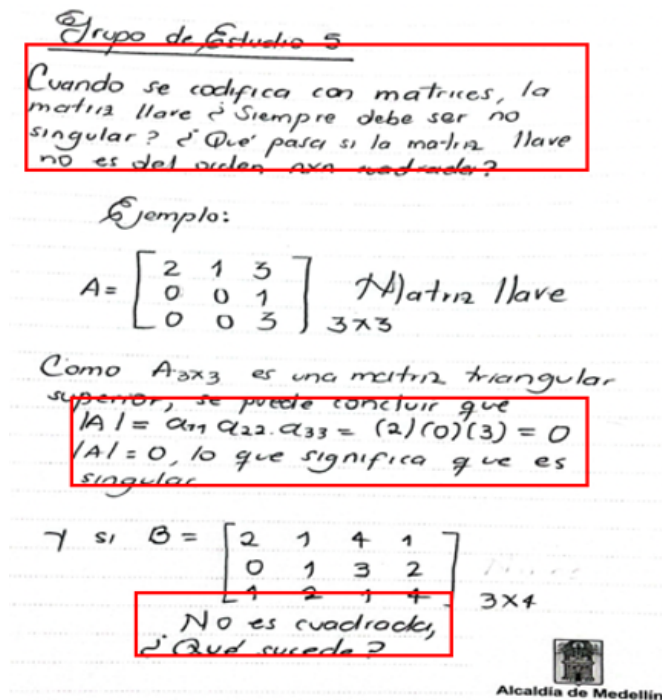 Grupo de Estudio 5
Cuando se codifica con matrices, la
matriz llave ¿Siempre debe ser no
singular? ¿Qué pasa si la matriz llave
no es del orden nxn cuadrada?
Ejemplo:
A = [ 2 1 3
0 0 1
0 0 3 ] 3x3 Matriz llave
Como A3x3 es una matriz triangular
superior, se puede concluir que
|A| = a11 a22. a33 = (2)(0)(3) = 0
|A| = 0, lo que significa que es
singular
Y si B = [ 2 1 4 1
0 1 3 2
1 2 1 4 ] 3x4
No es cuadrada,
¿Qué sucede?
Alcaldía de Medellín